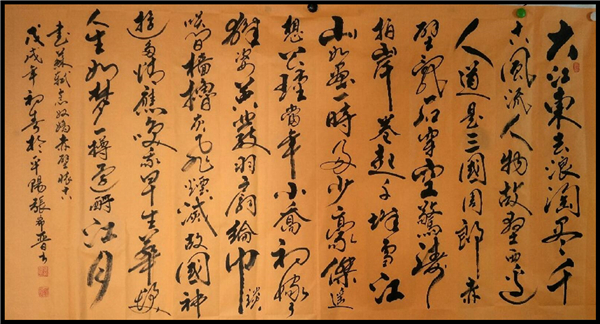 大江東去浪淘尽千
古風流人物故壘西邊
人道是三國周郎赤
壁乱石穿空驚濤
拍岸卷起千堆雪江
山如畫一時多少豪傑遙
想公瑾當年小喬初嫁了
雄姿英發羽扇綸巾談
笑間檣櫓灰飛煙滅故國神
遊多情應笑我早生華髮
人生如夢一樽還酹江月
书蘇軾念奴嬌赤壁懷古
戊戌年初春於平陽張希